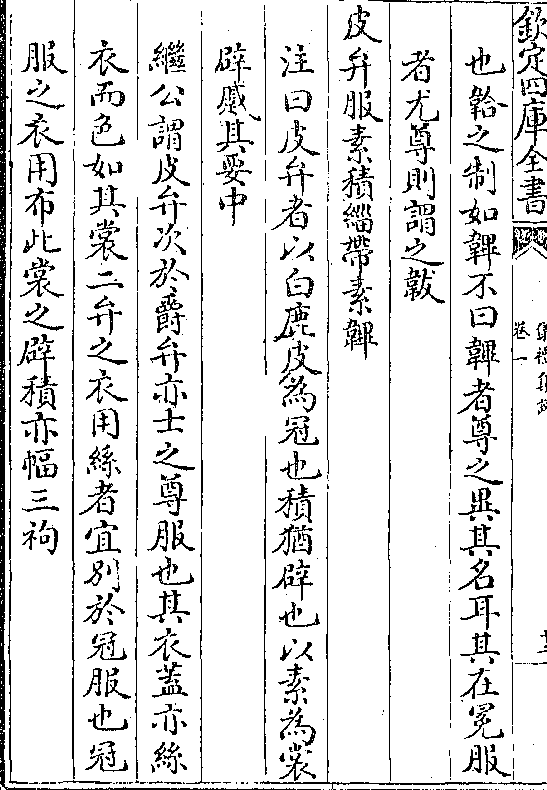 欽定四庫全書
儀禮集說
卷一
也韐之制如韠不曰韠者尊之異其名耳其在冕服
者尤尊則謂之韍
皮弁服素積緇帶素韠
注曰皮弁者以白鹿皮為冠也積猶辟也以素為裳
辟蹙其要中
繼公謂皮弁次於爵弁亦士之尊服也其衣蓋亦絲
衣而色如其裳二弁之衣用絲者宜別於冠服也冠
服之衣用布此裳之辟積亦幅三袧